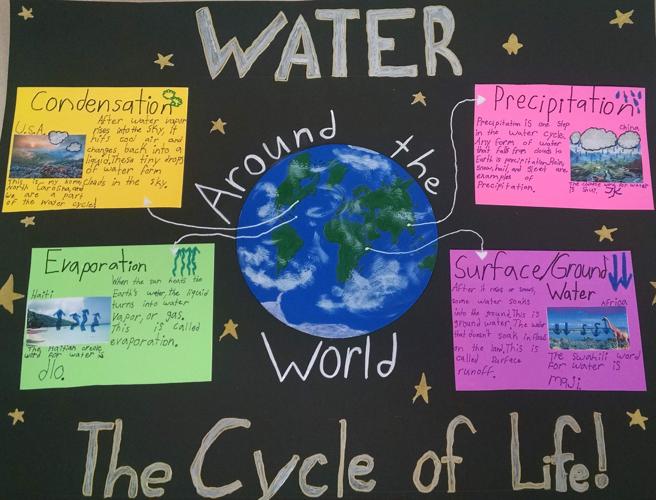 WATER
Condensation
U.S.A.
After water vapor
rises into the sky, it
hits cool air and
changes back into a
liquid. These tiny drops
of water form
clouds in the sky.
This is my home,
North Carolina, and
we are a part
of the water cycle!
Precipitation
Precipitation is one step
in the water cycle.
Any form of water
that falls from clouds to
Earth is precipitation. Rain,
snow, hail, and sleet are
examples of
Precipitation.
China
The Chinese word for water
is Shui.
Around the
World
Evaporation
Haiti
When the sun heats the
Earth's water, the liquid
turns into water
vapor, or gas.
This is called
evaporation.
The Haitian creole
word for water is
dlo.
Surface/Ground
Water
After it rains or snows,
some water soaks
into the ground. This is
ground water. The water
that doesn't soak in flows
on the land. This is
called surface
runoff.
Africa
The Swahili word
for water is
maji.
The Cycle of Life!